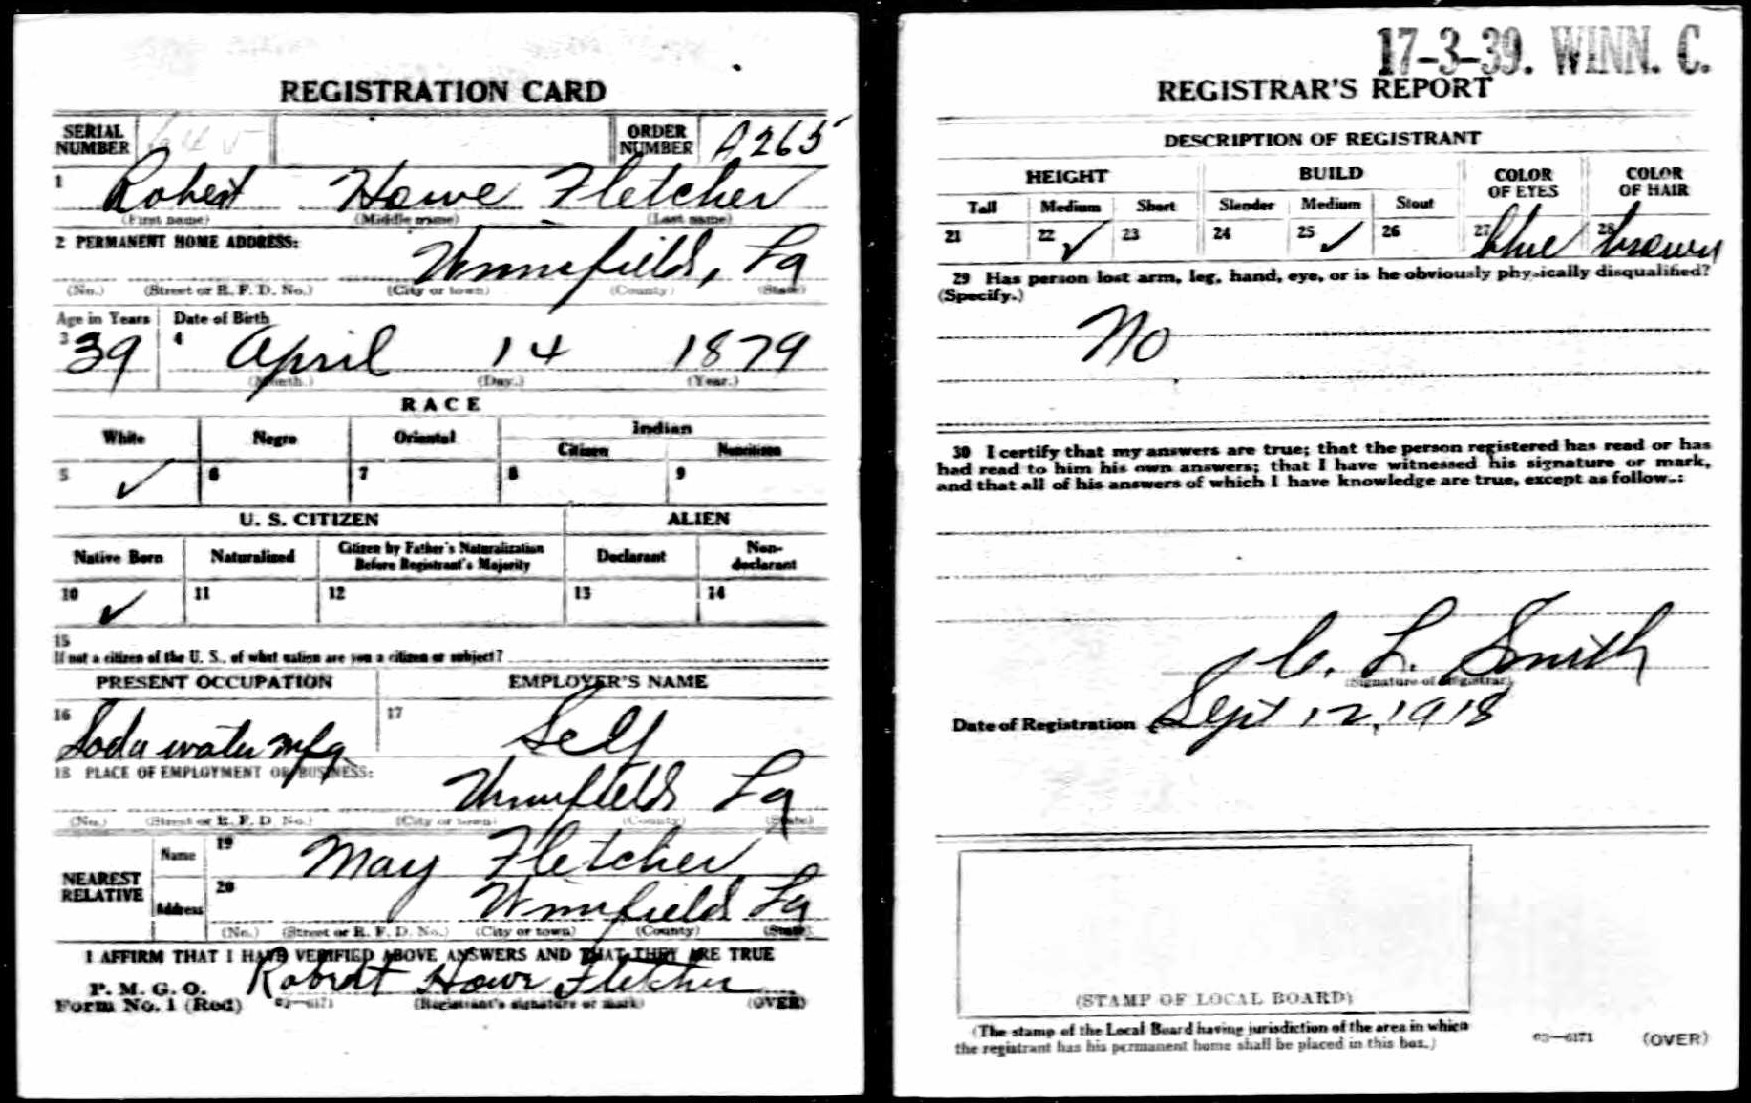 REGISTRATION CARD
SERIAL NUMBER 645 ORDER NUMBER A265
1 Robert Howe Fletcher
(First name) (Middle name) (Last name)
2 PERMANENT HOME ADDRESS:
Winnfield, La
(No.) (Street or R. F. D. No.) (City or town) (County) (State)
Age in Years Date of Birth
3 39 4 April 14 1879
(Month.) (Day.) (Year.)
RACE
White Negro Oriental Indian
Citizen Noncitizen
5 ✓ 6 7 8 9
U. S. CITIZEN ALIEN
Native Born Naturalized Citizen by Father's Naturalization Before Registrant's Majority Declarant Non-declarant
10 ✓ 11 12 13 14
15
If not a citizen of the U. S., of what nation are you a citizen or subject?
PRESENT OCCUPATION EMPLOYER'S NAME
16 Soda water mfg 17 Self
18 PLACE OF EMPLOYMENT OR BUSINESS:
Winnfield La
(No.) (Street or R. F. D. No.) (City or town) (County) (State)
NEAREST RELATIVE
Name 19 May Fletcher
Address 20 Winnfield La
(No.) (Street or R. F. D. No.) (City or town) (County) (State)
I AFFIRM THAT I HAVE VERIFIED ABOVE ANSWERS AND THAT THEY ARE TRUE
P. M. G. O.
Form No. 1 (Red) 03—6171 Robert Howe Fletcher
(Registrant's signature or mark) (OVER)
17-3-39. WINN. C.
REGISTRAR'S REPORT
DESCRIPTION OF REGISTRANT
HEIGHT BUILD COLOR OF EYES COLOR OF HAIR
Tall Medium Short Slender Medium Stout
21 22 ✓ 23 24 25 ✓ 26 27 blue 28 brown
29 Has person lost arm, leg, hand, eye, or is he obviously physically disqualified?
(Specify.)
No
30 I certify that my answers are true; that the person registered has read or has
had read to him his own answers; that I have witnessed his signature or mark,
and that all of his answers of which I have knowledge are true, except as follows:
L. Smith
(Signature of Registrar)
Date of Registration Sept 12, 1918
(STAMP OF LOCAL BOARD)
(The stamp of the Local Board having jurisdiction of the area in which
the registrant has his permanent home shall be placed in this box.)
03—6171 (OVER)